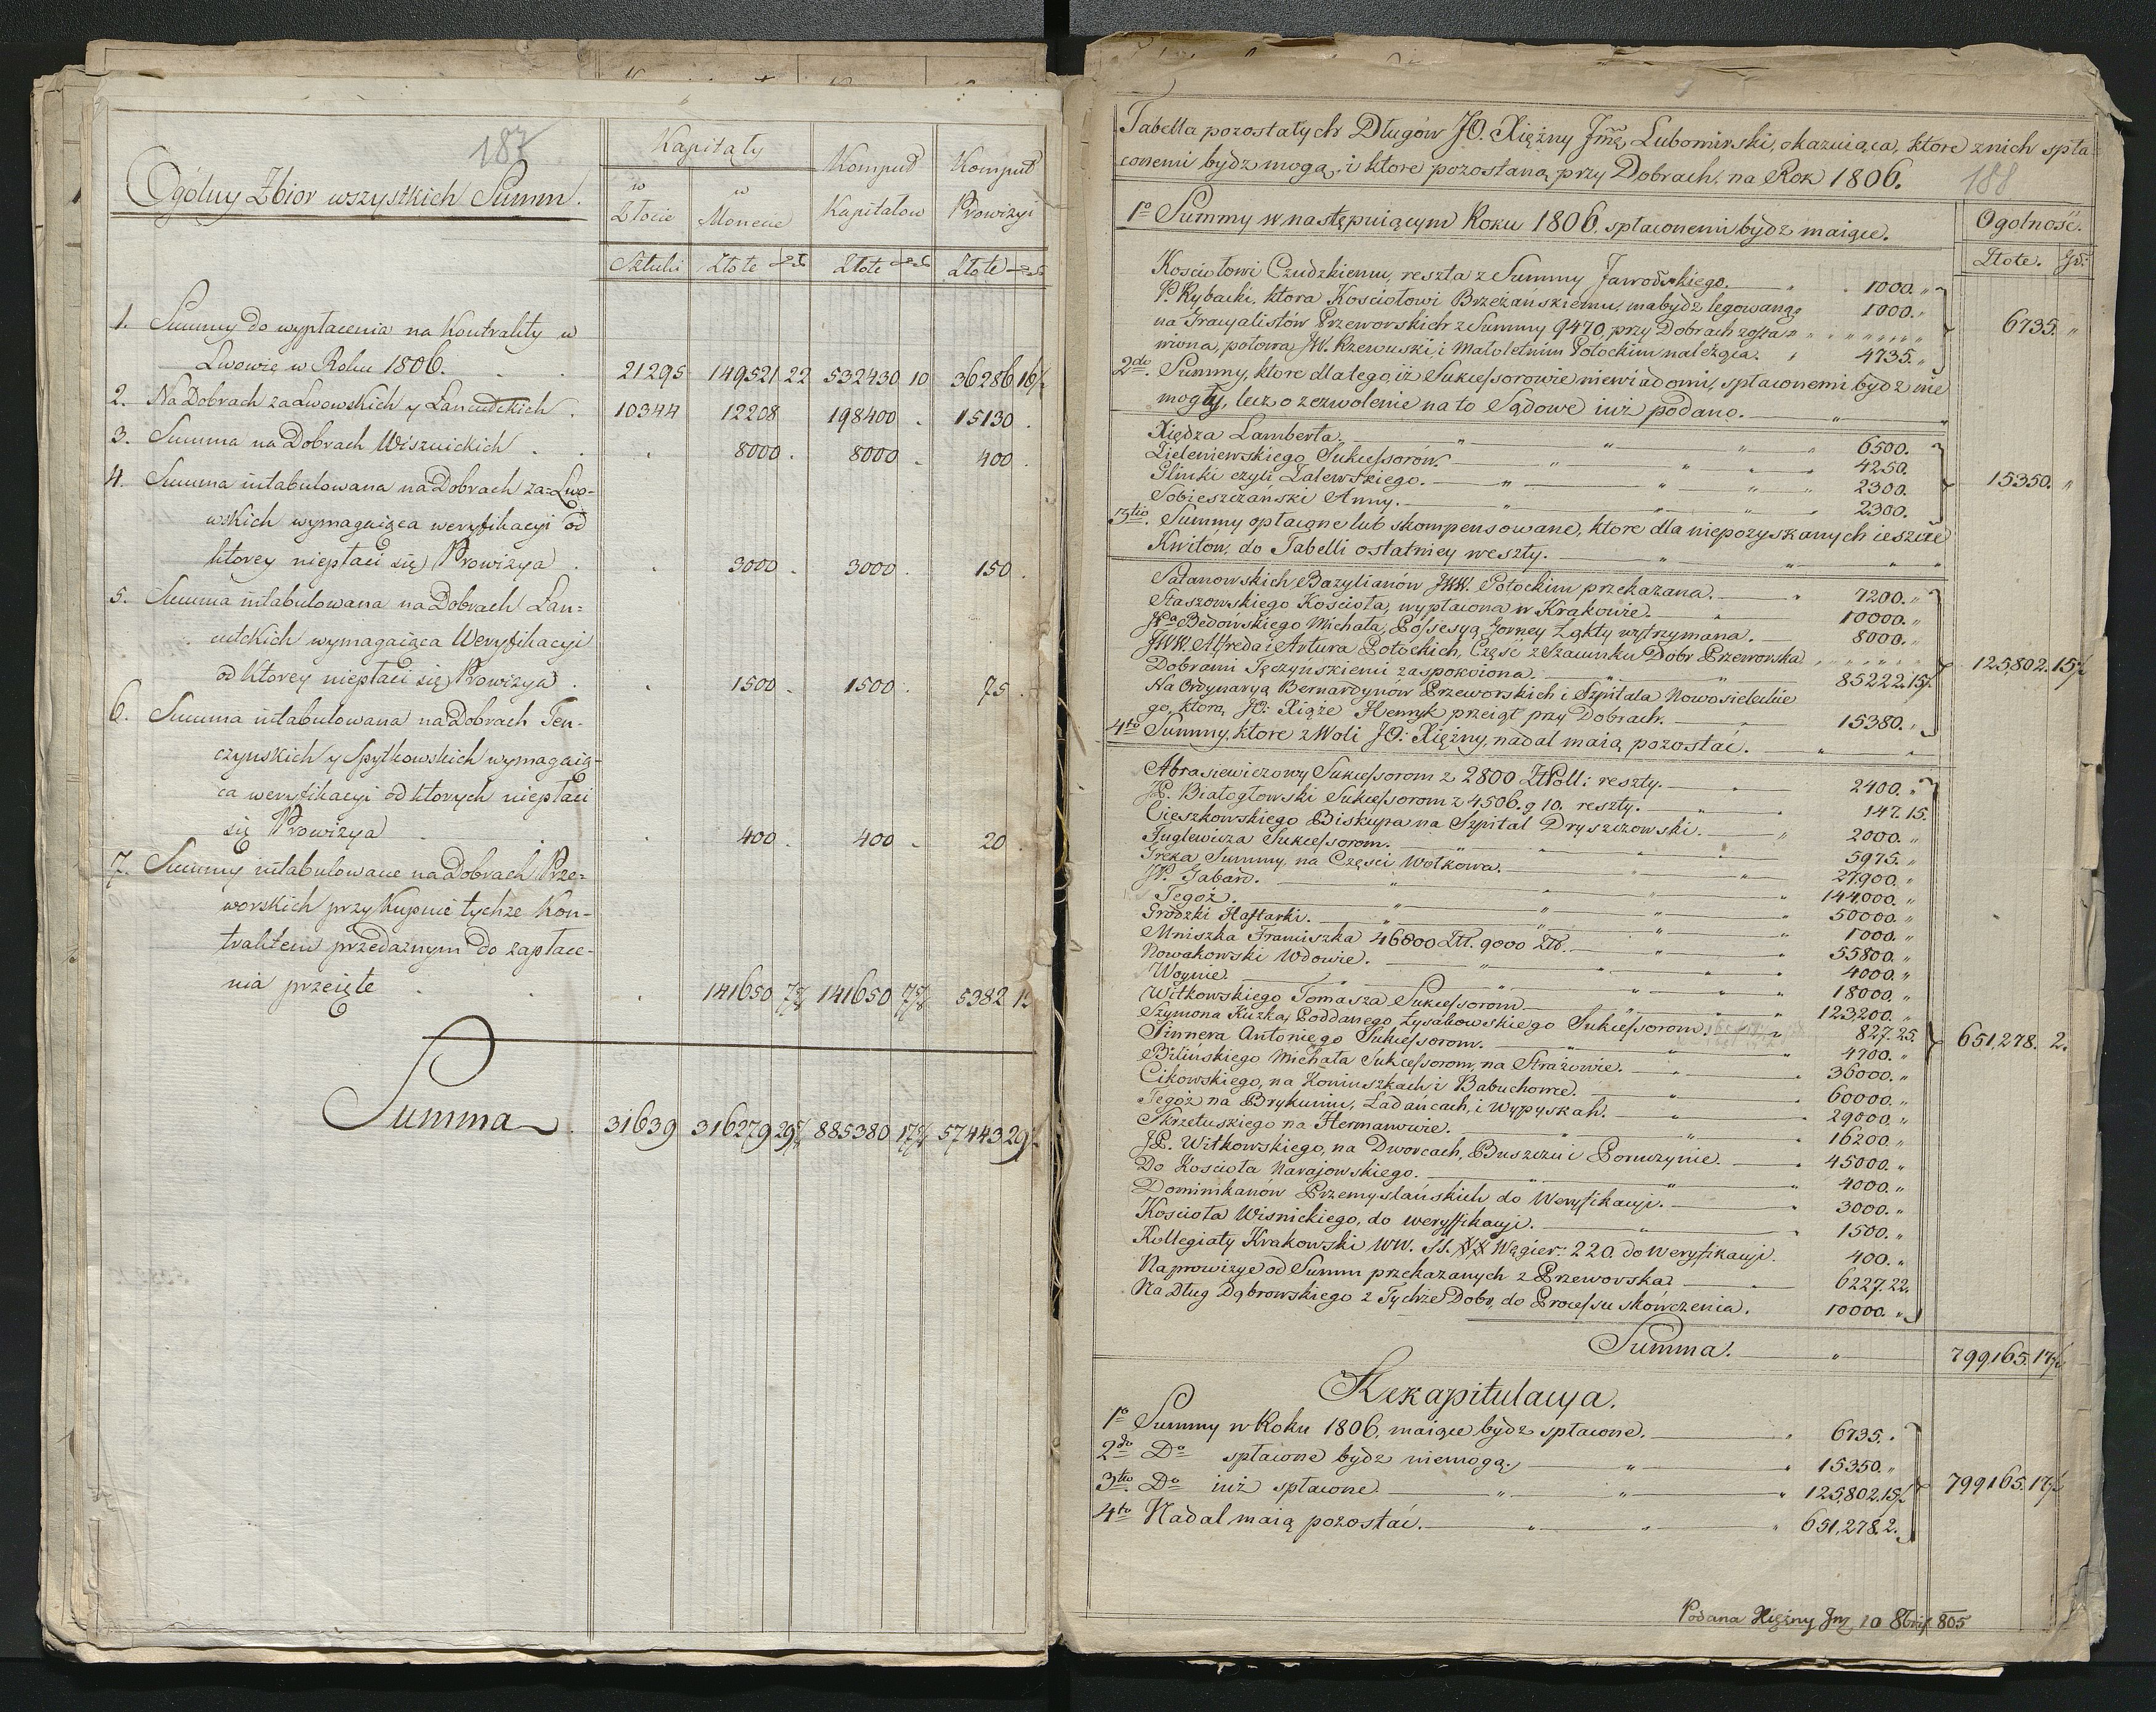 187
Ogólny Zbior wszystkich Summ.
Kapitały
w Złocie
w Monecie
Komput Kapitałow
Komput Prowizyi
Sztuki Złote gr Złote gr Złote gr
1. Summy do wypłacenia na Kontrakty w
Lwowie w Roku 1806. . . 21295 149521 22 532430 10 36286 16/
2. Na Dobrach za Lwowskich y Lancutckich . 10344 12208 198400 . 15130 .
3. Summa na Dobrach Wisznickich . . . 8000 . 8000 . 400 .
4. Summa intabulowana na Dobrach za=Lwo-
wskich wymagaiąca weryfikacyi od
ktorey niepłaci się Prowizya . . 3000 . 3000 . 150 .
5. Summa intabulowana na Dobrach Lan=
cutckich wymagaiąca Weryfikacyi
od Ktorey niepłaci się Prowizya . . 1500 . 1500 . 75 .
6. Summa intabulowana na Dobrach Ten-
czynskich y Spytkowskich wymagaią-
ca weryfikacyi od ktorych niepłaci
się Prowizya . . . 400 . 400 . 20 .
7. Summy intabulowane na Dobrach Prze-
worskich przy Kupnie tychże Kon-
traktem przedaznym do zapłace-
nia przeięte . . . 141650 7 141650 7 5382 1
Summa . 31639 316279 29 885380 17 57443 29
Tabella pozostałych Długów JO. Xiężny Jmę Lubomirski, okazuiąca, ktore z nich spła
conemi bydz mogą, i ktore pozostaną przy Dobrach, na Rok 1806.
188
1o Summy w następuiącym Roku 1806. spłaconemi bydz maiące.
Ogolność.
Złote. Gr:
Kosciołowi Czudzkiemu, reszta z Summy Jaworskiego. 1000. "
P. Rybacki, ktora Kosciołowi Brzeżańskiemu, ma bydz legowaną 1000. "
na Gracyalistów Przeworskich z Summy 9470, przy Dobrach zosta
wiona, połowa JW. Rzewuski, i Małoletnim Potockim należąca. 4735. " 6735. "
2do. Summy, ktore dla tego, iż Sukcessorowie niewiadomi, spłaconemi bydz nie
mogły, lecz o zezwolenie na to Sądowe iuż podano.
Xiędza Lamberta. 6500.
Zieleniewskiego Sukcessorów. 4250.
Glinki czyli Zalewskiego. 2300.
Sobieszczański Anny. 2300. 15350. "
3tio. Summy opłacone lub skompensowane, ktore dla niepozyskanych ieszcze
Kwitow, do Tabelli ostatniey weszły.
Satanowskich Bazylianów JWW. Potockim przekazana. 7200. "
Staszowskiego Kościoła, wypłacona w Krakowie. 10000. "
Bidowskiego Michała, Possesyą Gorney Łąkty wytrzymana. 8000. "
JWW. Alfreda i Artura Potockich, Część z Szacunku Dobr Przeworska
Dobrami Tęczyńskiemi zaspokoiona. 85222.15/.
Na Ordynaryą Bernardynów Przeworskich i Szpitala Nowosieleckie
go, ktorą JO: Xiąże Henryk przeiął przy Dobrach. 15380. " 125,802.15
4to Summy, ktore z Woli JO: Xiężny, nadal maią pozostać.
Abrasiewiczowy Sukcessorom z 2800 ZłPoll: reszty. 2400. "
JP. Białogłowski Sukcessorom z 4506. g 10. reszty. 147.15.
Cieszkowskiego Biskupa na Szpital Dryszczowski. 2000. "
Guglewicza Sukcessorom. 5975. "
Greka Summy, na Części Wołkowa. 27,900. "
JP. Jabard. 144,000. "
Tegoż. 50000. "
Grodzki Haftarki. 1000. "
Mniszka Franciszka 46800 Złł. 9000 Złd. 55800. "
Nowakowski Wdowie. 4000. "
Woynie. 18000. "
Witkowskiego Tomasza Sukcessorom. 123,200. "
Szymona Kuzka, Poddanego Łysakowskiego Sukcessorom. 827.25.
Pinnera Antoniego Sukcessorom. 4700. "
Bilinskiego Michała Sukcessorom, na Strażowie. 36000. "
Cikowskiego, na Koniuszkach i Babuchowie. 60000. "
Tegoż na Brykuniu, Ładańcach, i Wypyskach. 29000. "
Skrzetuskiego na Hermanowie. 16200. "
JP. Witkowskiego, na Dworcach, Buszczu i Poruczynie. 45000. "
Do Kościoła Narajowskiego. 4000. "
Dominikanów Przemyslańskich do Weryfikacyi. 3000. "
Kościoła Wisnickiego, do weryfikacyi. 1500. "
Kollegiaty Krakowski WW. SS. XX Węgier: 220. do Weryfikacyi. 400. "
Na prowizye od Summ przekazanych z Przeworska. 6227.22.
Na Dług Dąbrowskiego z Tychże Dobr, do Processu skończenia. 10000. " 651,278. 2.
Summa. 799,165.17
Rekapitulacya.
1o Summy w Roku 1806. maiące bydz spłacone. 6735. "
2do Do spłacone bydz niemogą. 15350. "
3tio. Do iuż spłacone. 125,802.15/
4to Nadal maią pozostać. 651,278.2. 799165.17
Podana Xiężny Jmę 10 8bris 805